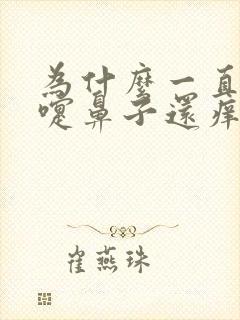 為什麼一直
嚏鼻子還痒
崔燕珠